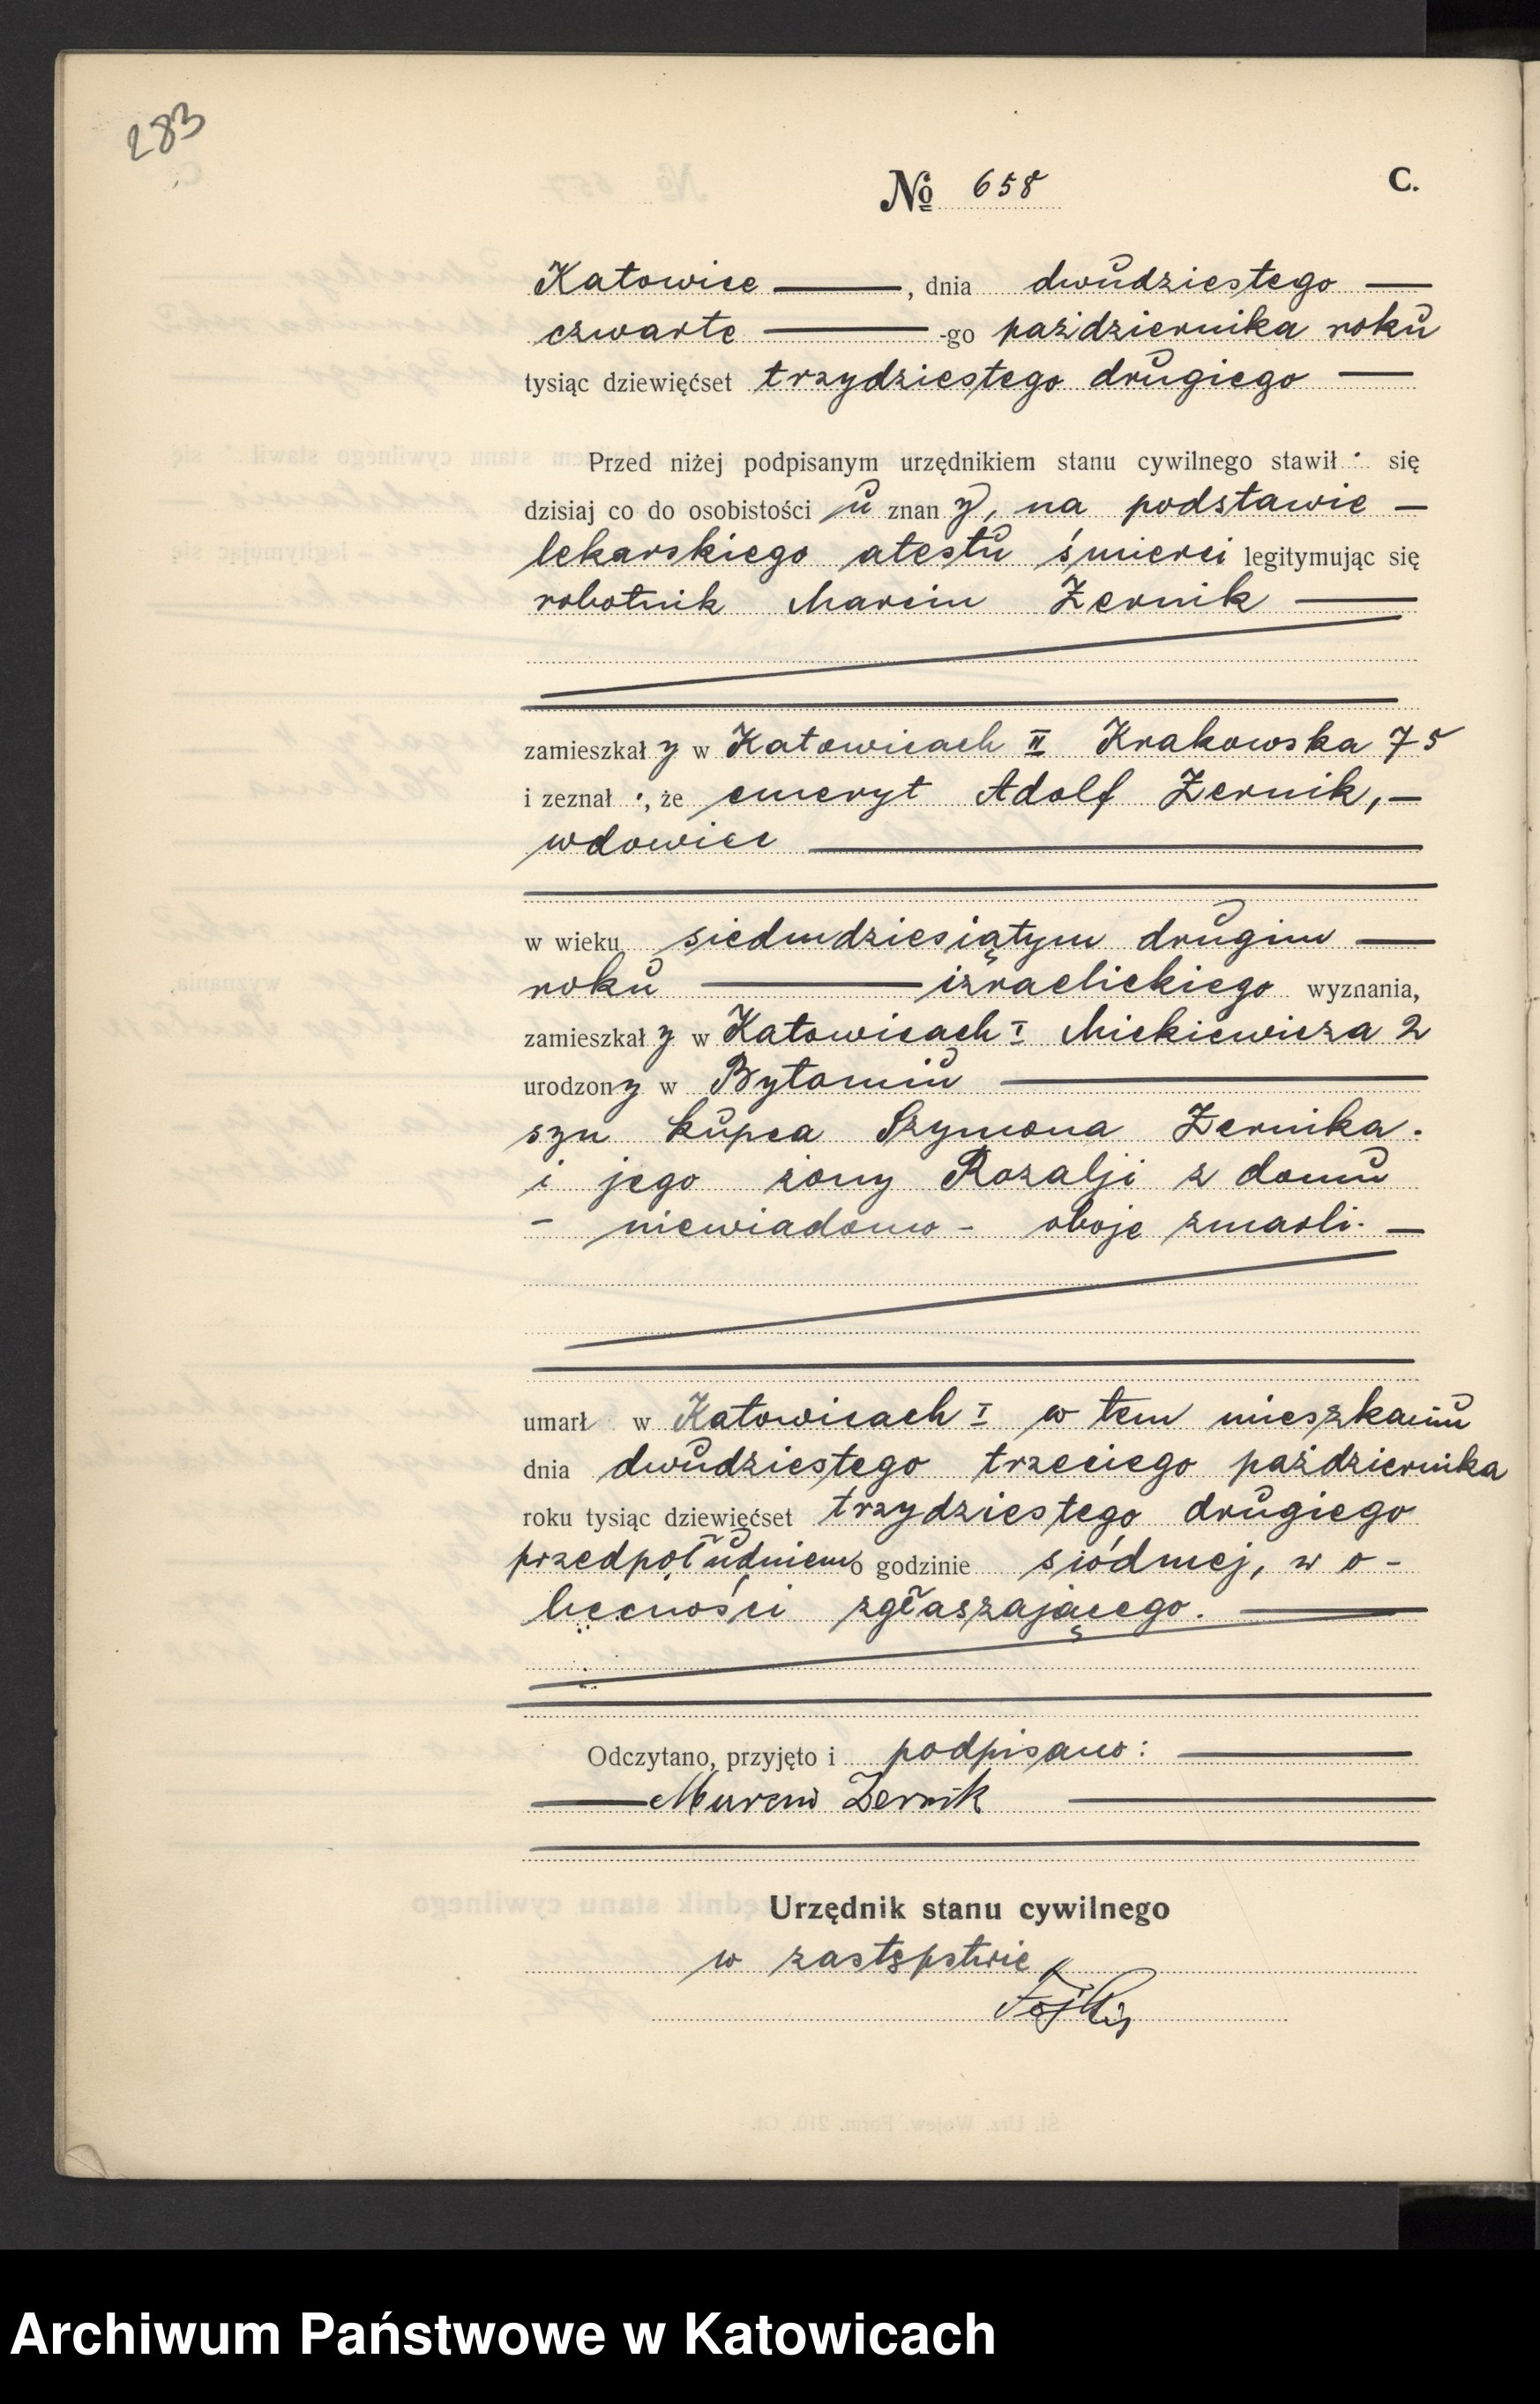 283
№ 658 C.
Katowice , dnia dwudziestego
czwarte -go października roku
tysiąc dziewięćset trzydziestego drugiego
Przed niżej podpisanym urzędnikiem stanu cywilnego stawił się
dzisiaj co do osobistości u znan y, na podstawie
lekarskiego atestu śmierci legitymując się
robotnik Marcin Zernik
zamieszkał y w Katowicach II Krakowska 75
i zeznał , że emeryt Adolf Zernik,
wdowiec
w wieku siedmdziesiątym drugim
roku izraelickiego wyznania,
zamieszkał y w Katowicach I Mickiewicza 2
urodzony w Bytomiu
syn kupca Szymona Zernika
i jego żony Rozalji z domu
- niewiadomo - oboje zmarli.
umarł w Katowicach I w tem mieszkaniu
dnia dwudziestego trzeciego października
roku tysiąc dziewięćset trzydziestego drugiego
przedpołudniem o godzinie siódmej, w o-
becności zgłaszającego.
Odczytano, przyjęto i podpisano:
Marcin Zernik
Urzędnik stanu cywilnego
w zastępstwie
Archiwum Państwowe w Katowicach